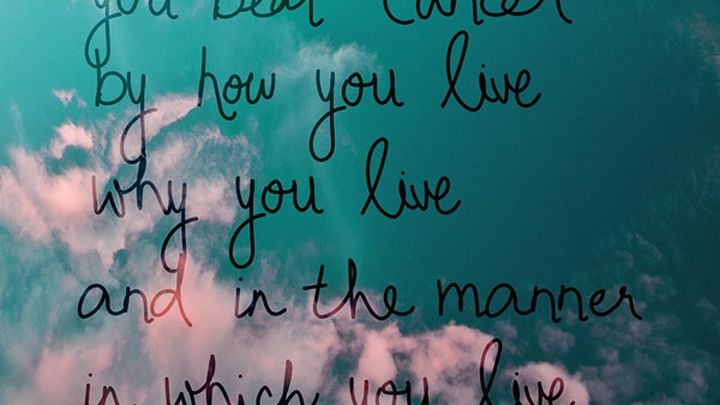 you beat cancer
by how you live
why you live
and in the manner
in which you live